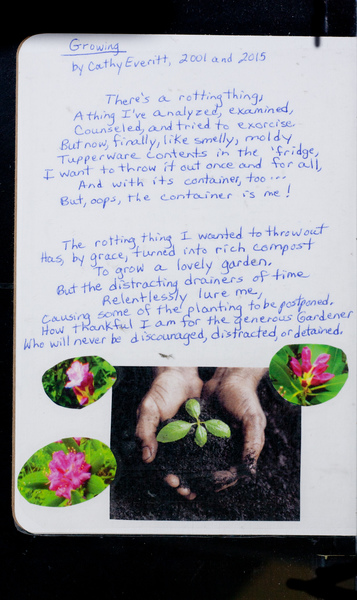 Growing
by Cathy Everitt, 2001 and 2015
There's a rotting thing,
A thing I've analyzed, examined,
Counseled, and tried to exorcise.
But now, finally, like smelly, moldy
Tupperware contents in the 'fridge,
I want to throw it out once and for all,
And with its container, too...
But, oops, the container is me!
The rotting thing I wanted to throw out
Has, by grace, turned into rich compost
To grow a lovely garden.
But the distracting drainers of time
Relentlessly lure me,
Causing some of the planting to be postponed.
How thankful I am for the generous Gardener
Who will never be discouraged, distracted, or detained.